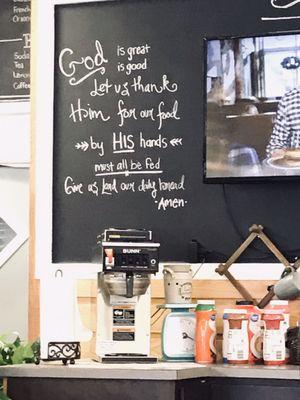 God is great
is good
Let us thank
Him for our food
by HIS hands
must all be Fed
Give us Lord our daily bread
·Amen·
BUNN
Soda
Tea
Coffee